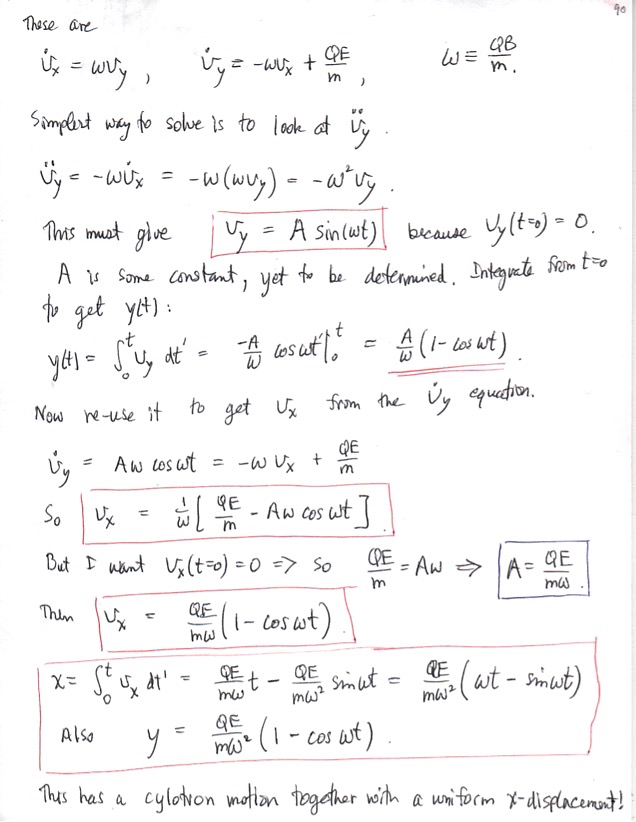 90
These are
v̇x = ωvy , v̇y = -ωvx + QE/m , ω ≡ QB/m.
Simplest way to solve is to look at v̈y.
v̈y = -ωv̇x = -ω(ωvy) = -ω²vy .
This must give vy = A sin(ωt) because vy(t=0) = 0.
A is some constant, yet to be determined. Integrate from t=0
to get y(t):
y(t) = ∫₀ᵗ vy dt' = -A/ω cos ωt'|₀ᵗ = A/ω (1 - cos ωt) .
Now re-use it to get vx from the v̇y equation.
v̇y = Aω cos ωt = -ω vx + QE/m
So vx = 1/ω [ QE/m - Aω cos ωt ] .
But I want vx(t=0) = 0 => So QE/m = Aω => A = QE/mω .
Then vx = QE/mω (1 - cos ωt) .
x = ∫₀ᵗ vx dt' = QE/mω t - QE/mω² sin ωt = QE/mω² (ωt - sin ωt)
Also y = QE/mω² (1 - cos ωt) .
This has a cylotron motion together with a uniform x-displacement!